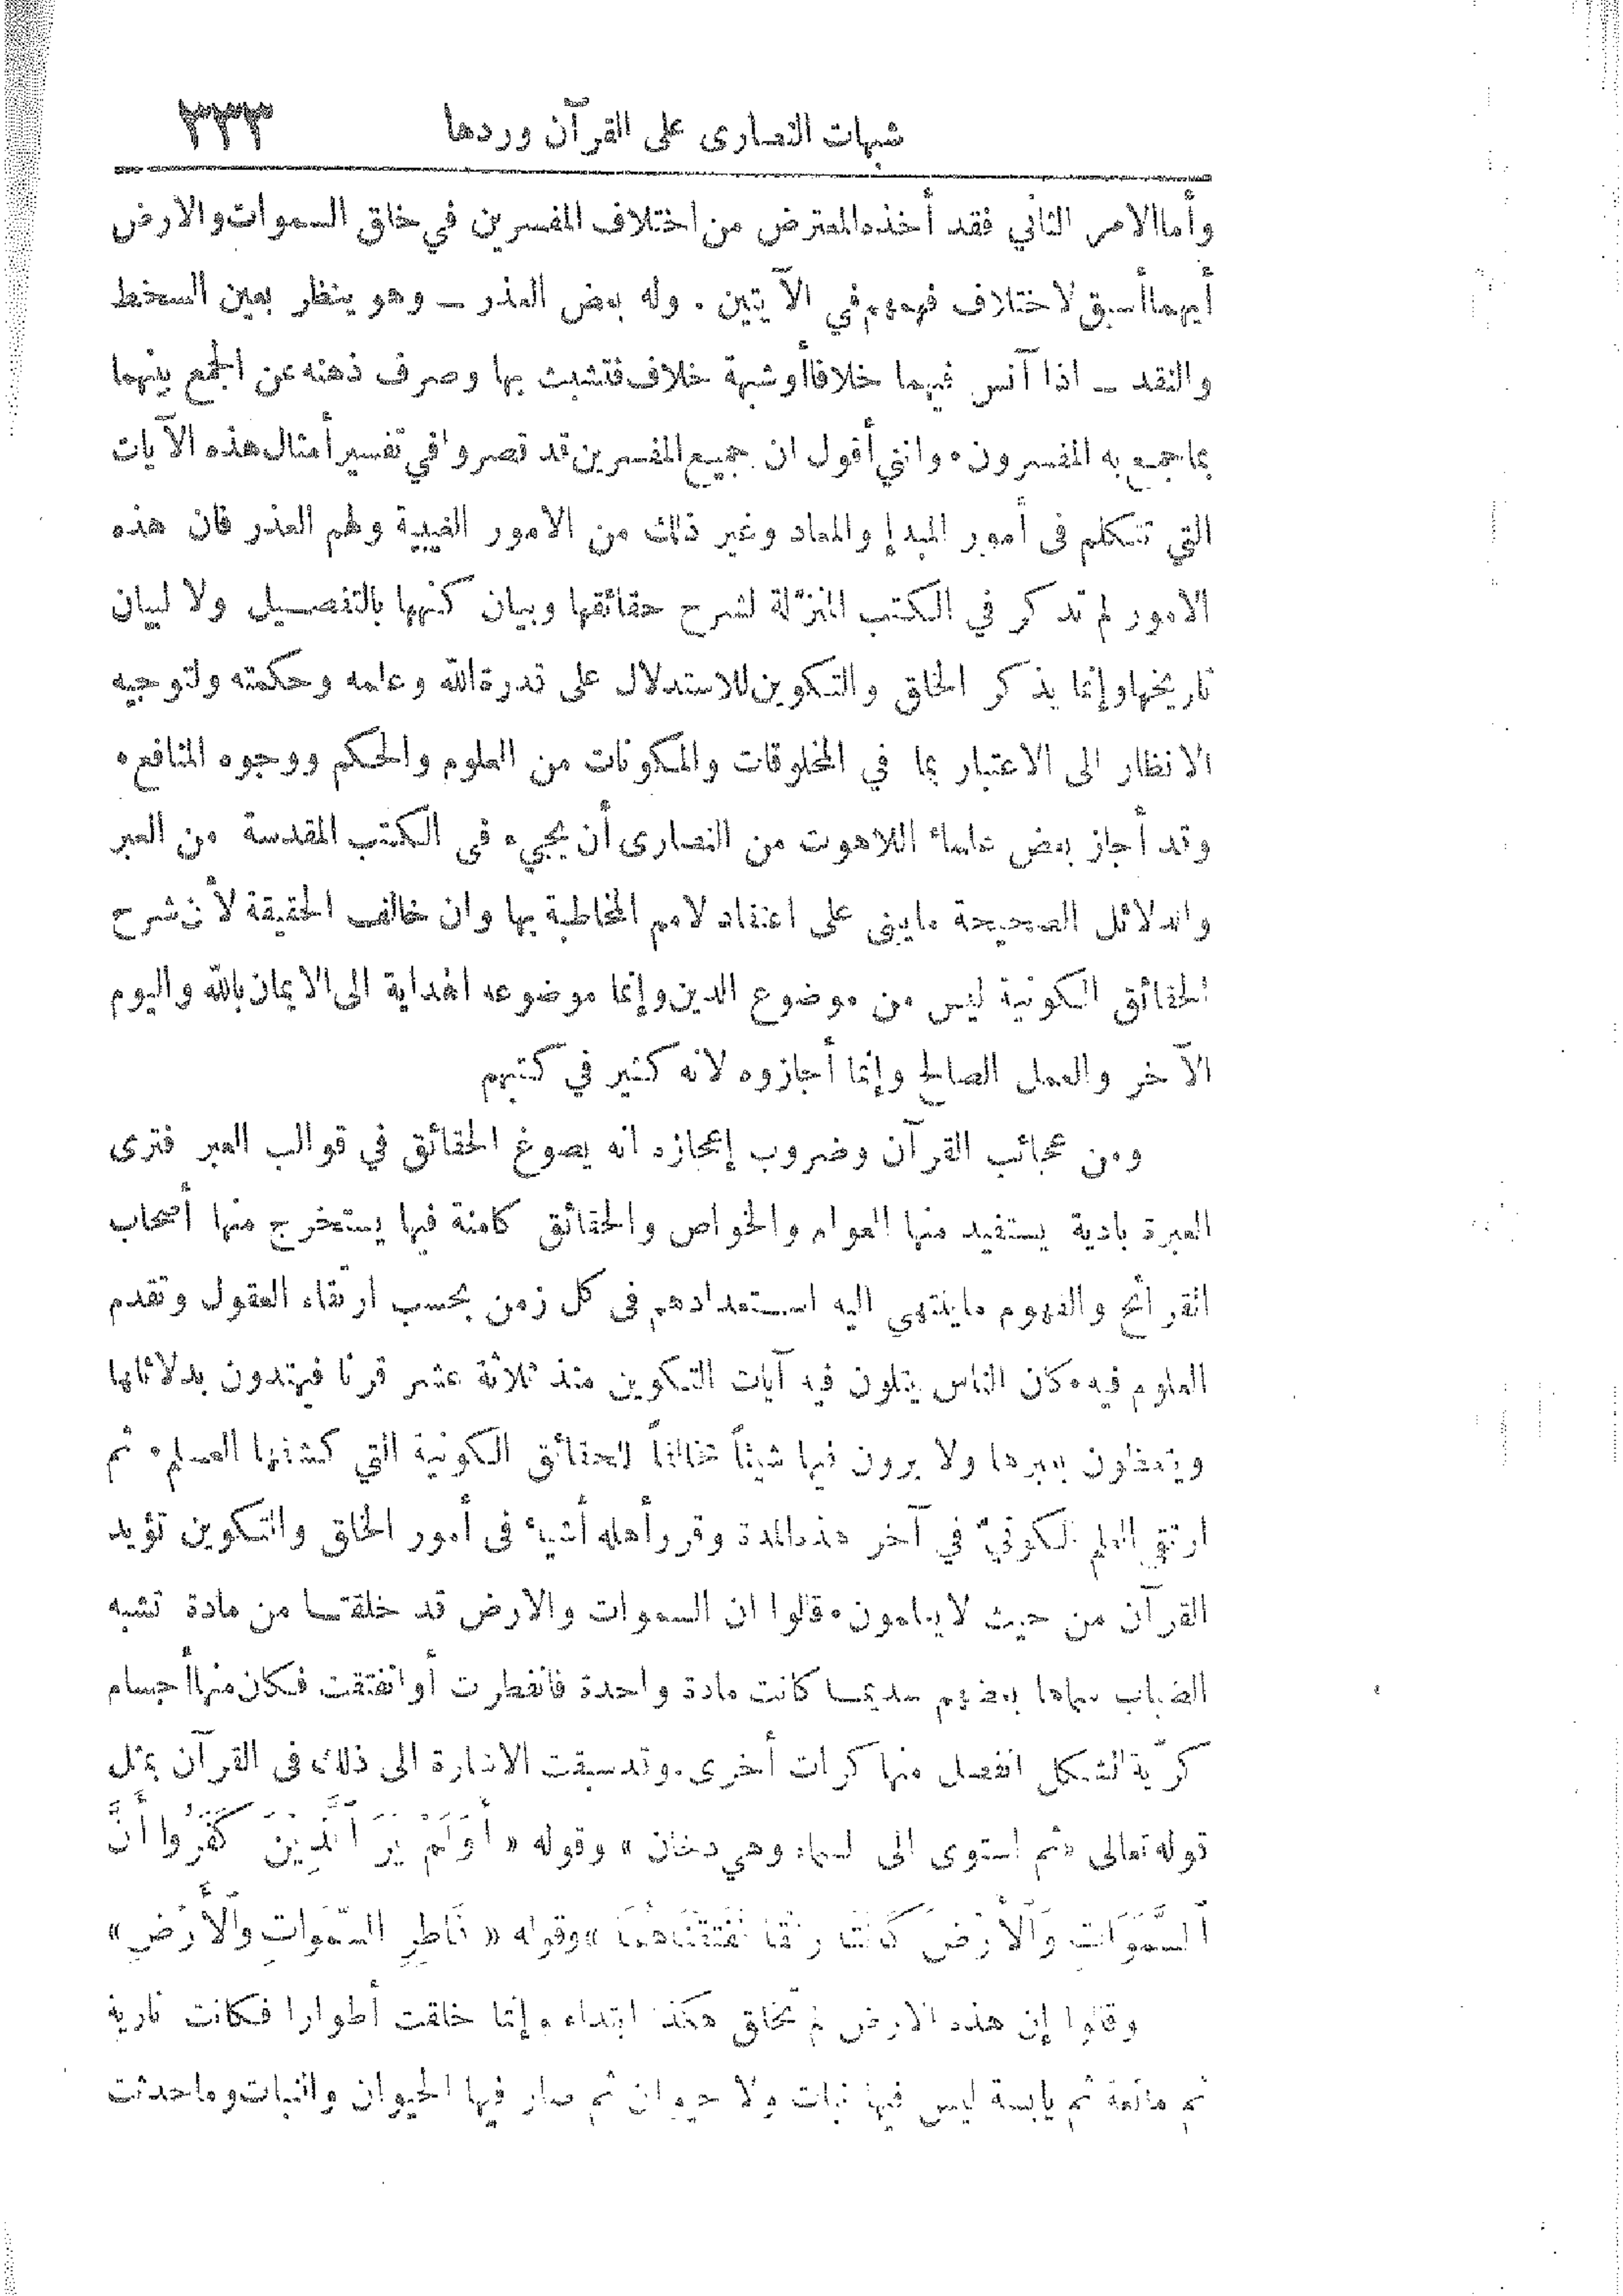 شبهات النصارى على القرآن وردها ٣٣٣
وأما الامر الثاني فقد أخذه المعترض من اختلاف المفسرين في خلق السموات والارض
أيهما أسبق لاختلاف فهمهم في الآيتين . وله بعض العذر ــ وهو ينظر بعين السخط
والنقد ــ اذا آنس فيهما خلافا أو شبهة خلاف فتشبث بها وصرف ذهنه عن الجمع بينهما
بما جمع به المفسرون ٠ وانني أقول ان جميع المفسرين قد قصروا في تفسير أمثال هذه الآيات
التي تتكلم في أمور المبدإ والمعاد وغير ذلك من الامور الغيبية ولهم العذر فان هذه
الامور لم تذكر في الكتب المنزّلة لشرح حقائقها وبيان كنهها بالتفصيل ولا لبيان
تاريخها وإنما يذكر الخلق والتكوين للاستدلال على قدرة الله وعلمه وحكمته ولتوجيه
الانظار الى الاعتبار بما في المخلوقات والمكونات من العلوم والحكم ووجوه المنافع ٠
وقد أجاز بعض علماء اللاهوت من النصارى أن يجيء في الكتب المقدسة من العبر
والدلائل الصحيحة ما يبنى على اعتقاد لامم المخاطبة بها وان خالف الحقيقة لأن شرح
الحقائق الكونية ليس من موضوع الدين وإنما موضوعه الهداية الى الايمان بالله واليوم
الآخر والعمل الصالح وإنما أجازوه لانه كثير في كتبهم
ومن عجائب القرآن وضروب إعجازه انه يصوغ الحقائق في قوالب العبر فترى
العبرة بادية يستفيد منها العوام والخواص والحقائق كامنة فيها يستخرج منها أصحاب
القرائح والفهوم ما ينتهي اليه استعدادهم في كل زمن بحسب ارتقاء العقول وتقدم
العلوم فيه ٠ كان الناس يتلون فيه آيات التكوين منذ ثلاثة عشر قرنا فيهتدون بدلائلها
ويتعظون بعبرها ولا يرون فيها شيئاً مخالفاً للحقائق الكونية التي كشفها العلم ٠ ثم
ارتقى العلم الكونيّ في آخر هذه المدة وقرر أهله أشياء في أمور الخلق والتكوين تؤيد
القرآن من حيث لا يعلمون ٠ قالوا ان السموات والارض قد خلقتا من مادة تشبه
الضباب سماها بعضهم سديما كانت مادة واحدة فانفطرت أو انفتقت فكان منها أجسام
كريّة الشكل انفصل منها كرات أخرى . وقد سبقت الاشارة الى ذلك في القرآن بمثل
قوله تعالى « ثم استوى الى لسماء وهي دخان » وقوله « أَوَلَمْ يَرَ ٱلَّذِينَ كَفَرُوا أَنَّ
ٱلسَّمَوَاتِ وَٱلْأَرْضَ كَانَتَا رَتْقًا فَفَتَقْنَاهُمَا » وقوله « فَاطِرِ السَّمَوَاتِ وَالْأَرْضِ »
وقالوا إن هذه الارض لم تخلق هكذا ابتداء وإنما خلقت أطوارا فكانت نارية
ثم مائعة ثم يابسة ليس فيها نبات ولا حيوان ثم صار فيها الحيوان والنبات وما حدثت